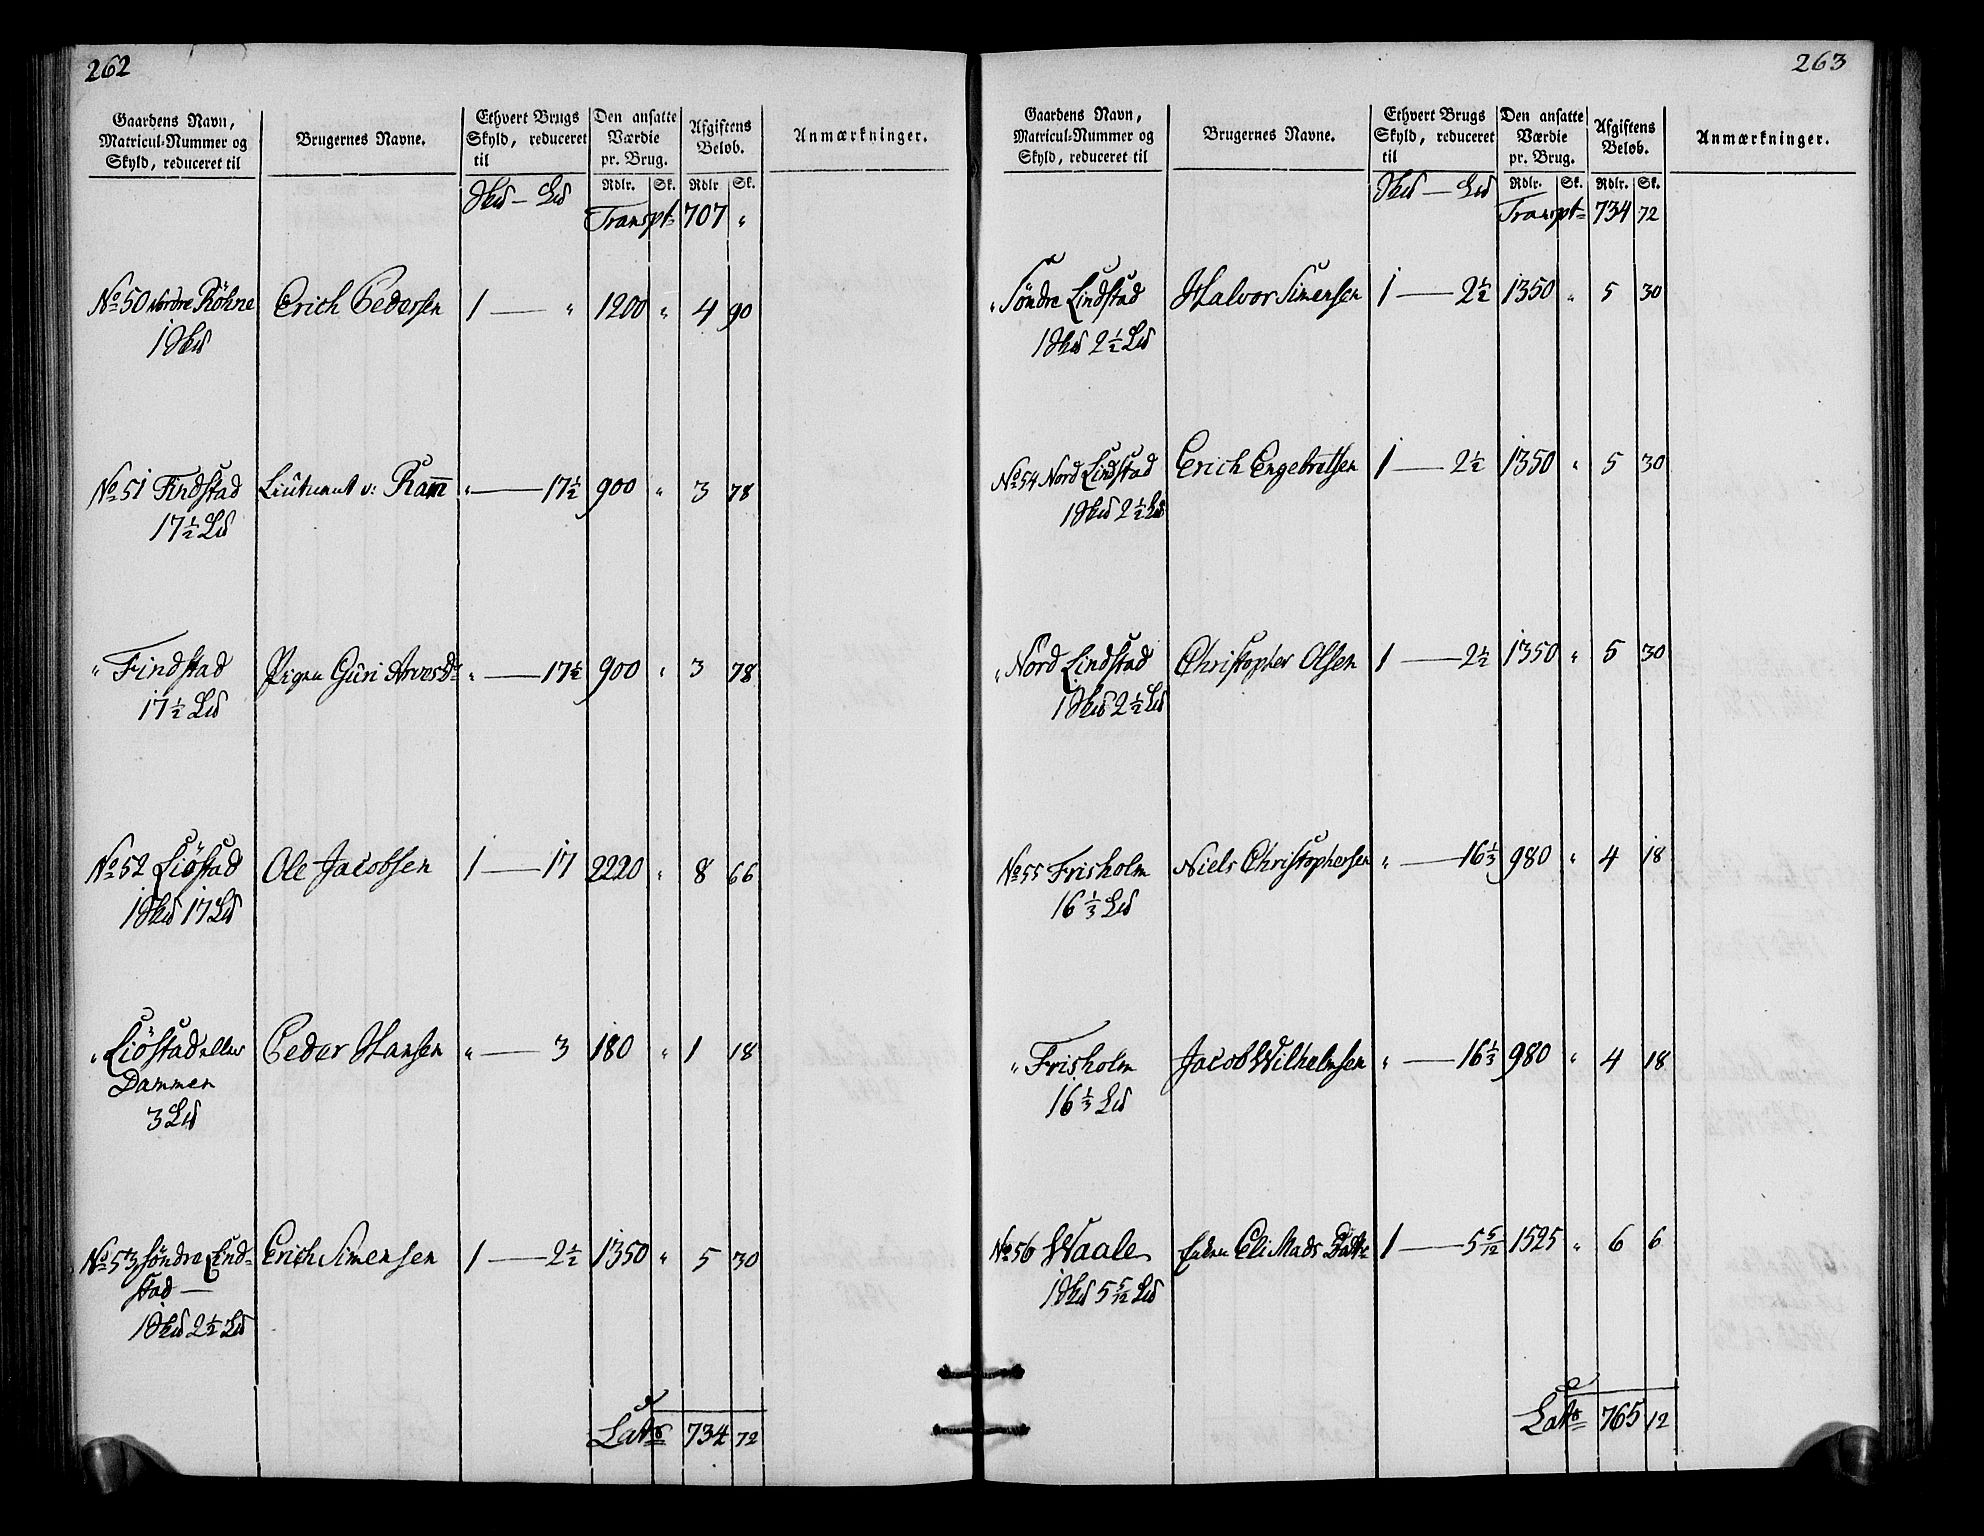 262
Gaardens Navn, Matricul-Nummer og Skyld, reduceret til | Brugernes Navne. | Ethvert Brugs Skyld, reduceret til | Den ansatte Værdie pr. Brug. | Afgiftens Beløb. | Anmærkninger.
Skd — Ld | Rdlr. | Sk. | Rdlr | Sk.
Transpt= 707 "
No 50 Nordre Röhne | Erich Pedersen | 1 — " | 1200 | " | 4 | 90
1 Skd
No 51 Findstad | Lieutenant v: Ram̅ | " — 17½ | 900 | " | 3 | 78
17½ Ld
" Findstad | Pigen Guri Arvesd= | " — 17½ | 900 | " | 3 | 78
17½ Ld
No 52 Liöstad | Ole Jacobsen | 1 — 17 | 2220 | " | 8 | 66
1 Skd 17 Ld
" Liöstad eller | Peder Hansen | " — 3 | 180 | " | 1 | 18
Dammen
3 Ld
No 53, Söndre Lind= | Erich Simensen | 1 — 2½ | 1350 | " | 5 | 30
stad —
1 Skd 2½ Ld
Lats 734 72
263
Gaardens Navn, Matricul-Nummer og Skyld, reduceret til | Brugernes Navne. | Ethvert Brugs Skyld, reduceret til | Den ansatte Værdie pr. Brug. | Afgiftens Beløb. | Anmærkninger.
Skd — Ld | Rdlr. | Sk. | Rdlr. | Sk.
Transpt= 734 72
" Söndre Lindstad | Halvor Simensen | 1 — 2½ | 1350 | " | 5 | 30
1 Skd 2½ Ld
No 54 Nord Lindstad | Erich Engebretsen | 1 — 2½ | 1350 | " | 5 | 30
1 Skd 2½ Ld
" Nord Lindstad | Christopher Olsen | 1 — 2½ | 1350 | " | 5 | 30
1 Skd 2½ Ld
No 55 Frisholm | Niels Christophersen | " — 16⅓ | 980 | " | 4 | 18
16⅓ Ld
" Frisholm | Jacob Wilhelmsen | " — 16⅓ | 980 | " | 4 | 18
16⅓ Ld
No 56 Waale | Enken Eli Mads Datt= | 1 — 5 5/12 | 1525 | " | 6 | 6
1 Skd 5 5/12 Ld
Lats 765 12